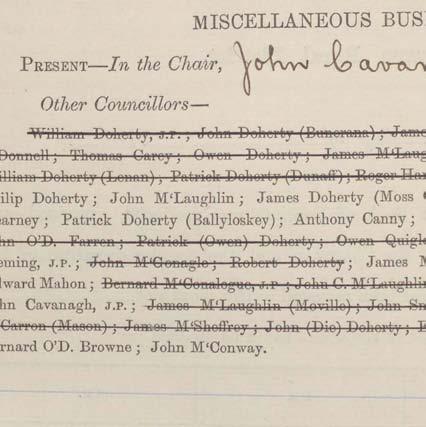 MISCELLANEOUS BUS
PRESENT—In the Chair, John Cavan
Other Councillors—
William Doherty, J.P. ; John Doherty (Buncrana) ; Jame
Donnell ; Thomas Carey ; Owen Doherty ; James M‘Laug
illiam Doherty (Lenan), Patrick Doherty (Dunaff) ; Roger Har
hilip Doherty ; John M‘Laughlin ; James Doherty (Moss
earney ; Patrick Doherty (Ballyloskey) ; Anthony Canny ;
hn O’D. Farren ; Patrick (Owen) Doherty ; Owen Quigle
eming, J.P. ; John M‘Gonagle ; Robert Doherty ; James M
dward Mahon ; Bernard M‘Conalogue, J.P ; John C. M‘Laughlin
hn Cavanagh, J.P. ; James M‘Laughlin (Moville) ; John Sm
‘Carron (Mason) ; James M‘Sheffrey ; John (Die) Doherty ; E
ernard O’D. Browne ; John M‘Conway.